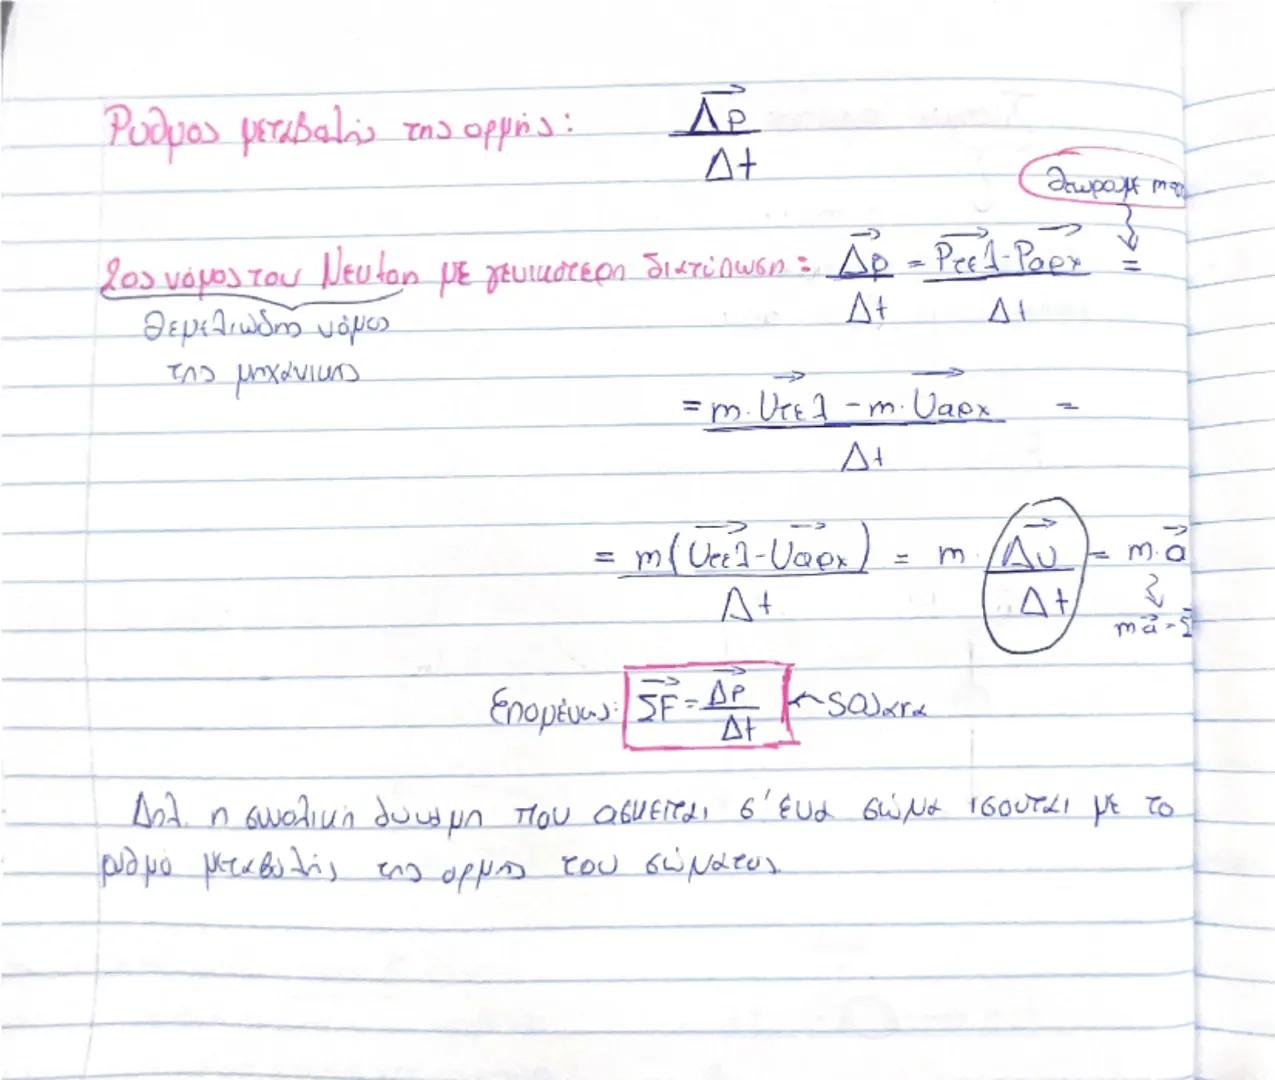 Ρυθμος μεταβολής της ορμής: Δp/Δt
Θεωραμε m=
2ος νόμος του Νευτon με γενικότερη διατύπωση: Δp/Δt = Pτελ-Pαρχ/Δt =
Θεμελιώδης νόμος
της μηχάνικης
= m·Uτελ - m·Uαρχ/Δt =
= m(Uτελ-Uαρχ)/Δt = m·Δυ/Δt = m·a
ma=Σ
Επομένως: ΣF=Δp/Δt
Δηλ. η συνολική δυναμη που ασκείται σ'ένα σώμα ισουται με το
ρυθμό μεταβολής της ορμης του σώματος.